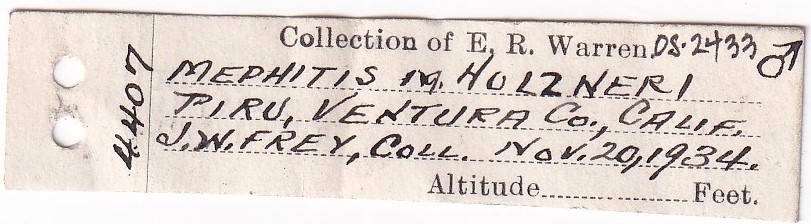 Collection of E. R. Warren DS-2433 ♂
MEPHITIS M. HOLZNERI
PIRU, VENTURA Co., CALIF.
J.W. FREY, COLL. NOV. 20, 1934.
Altitude............Feet.
4407